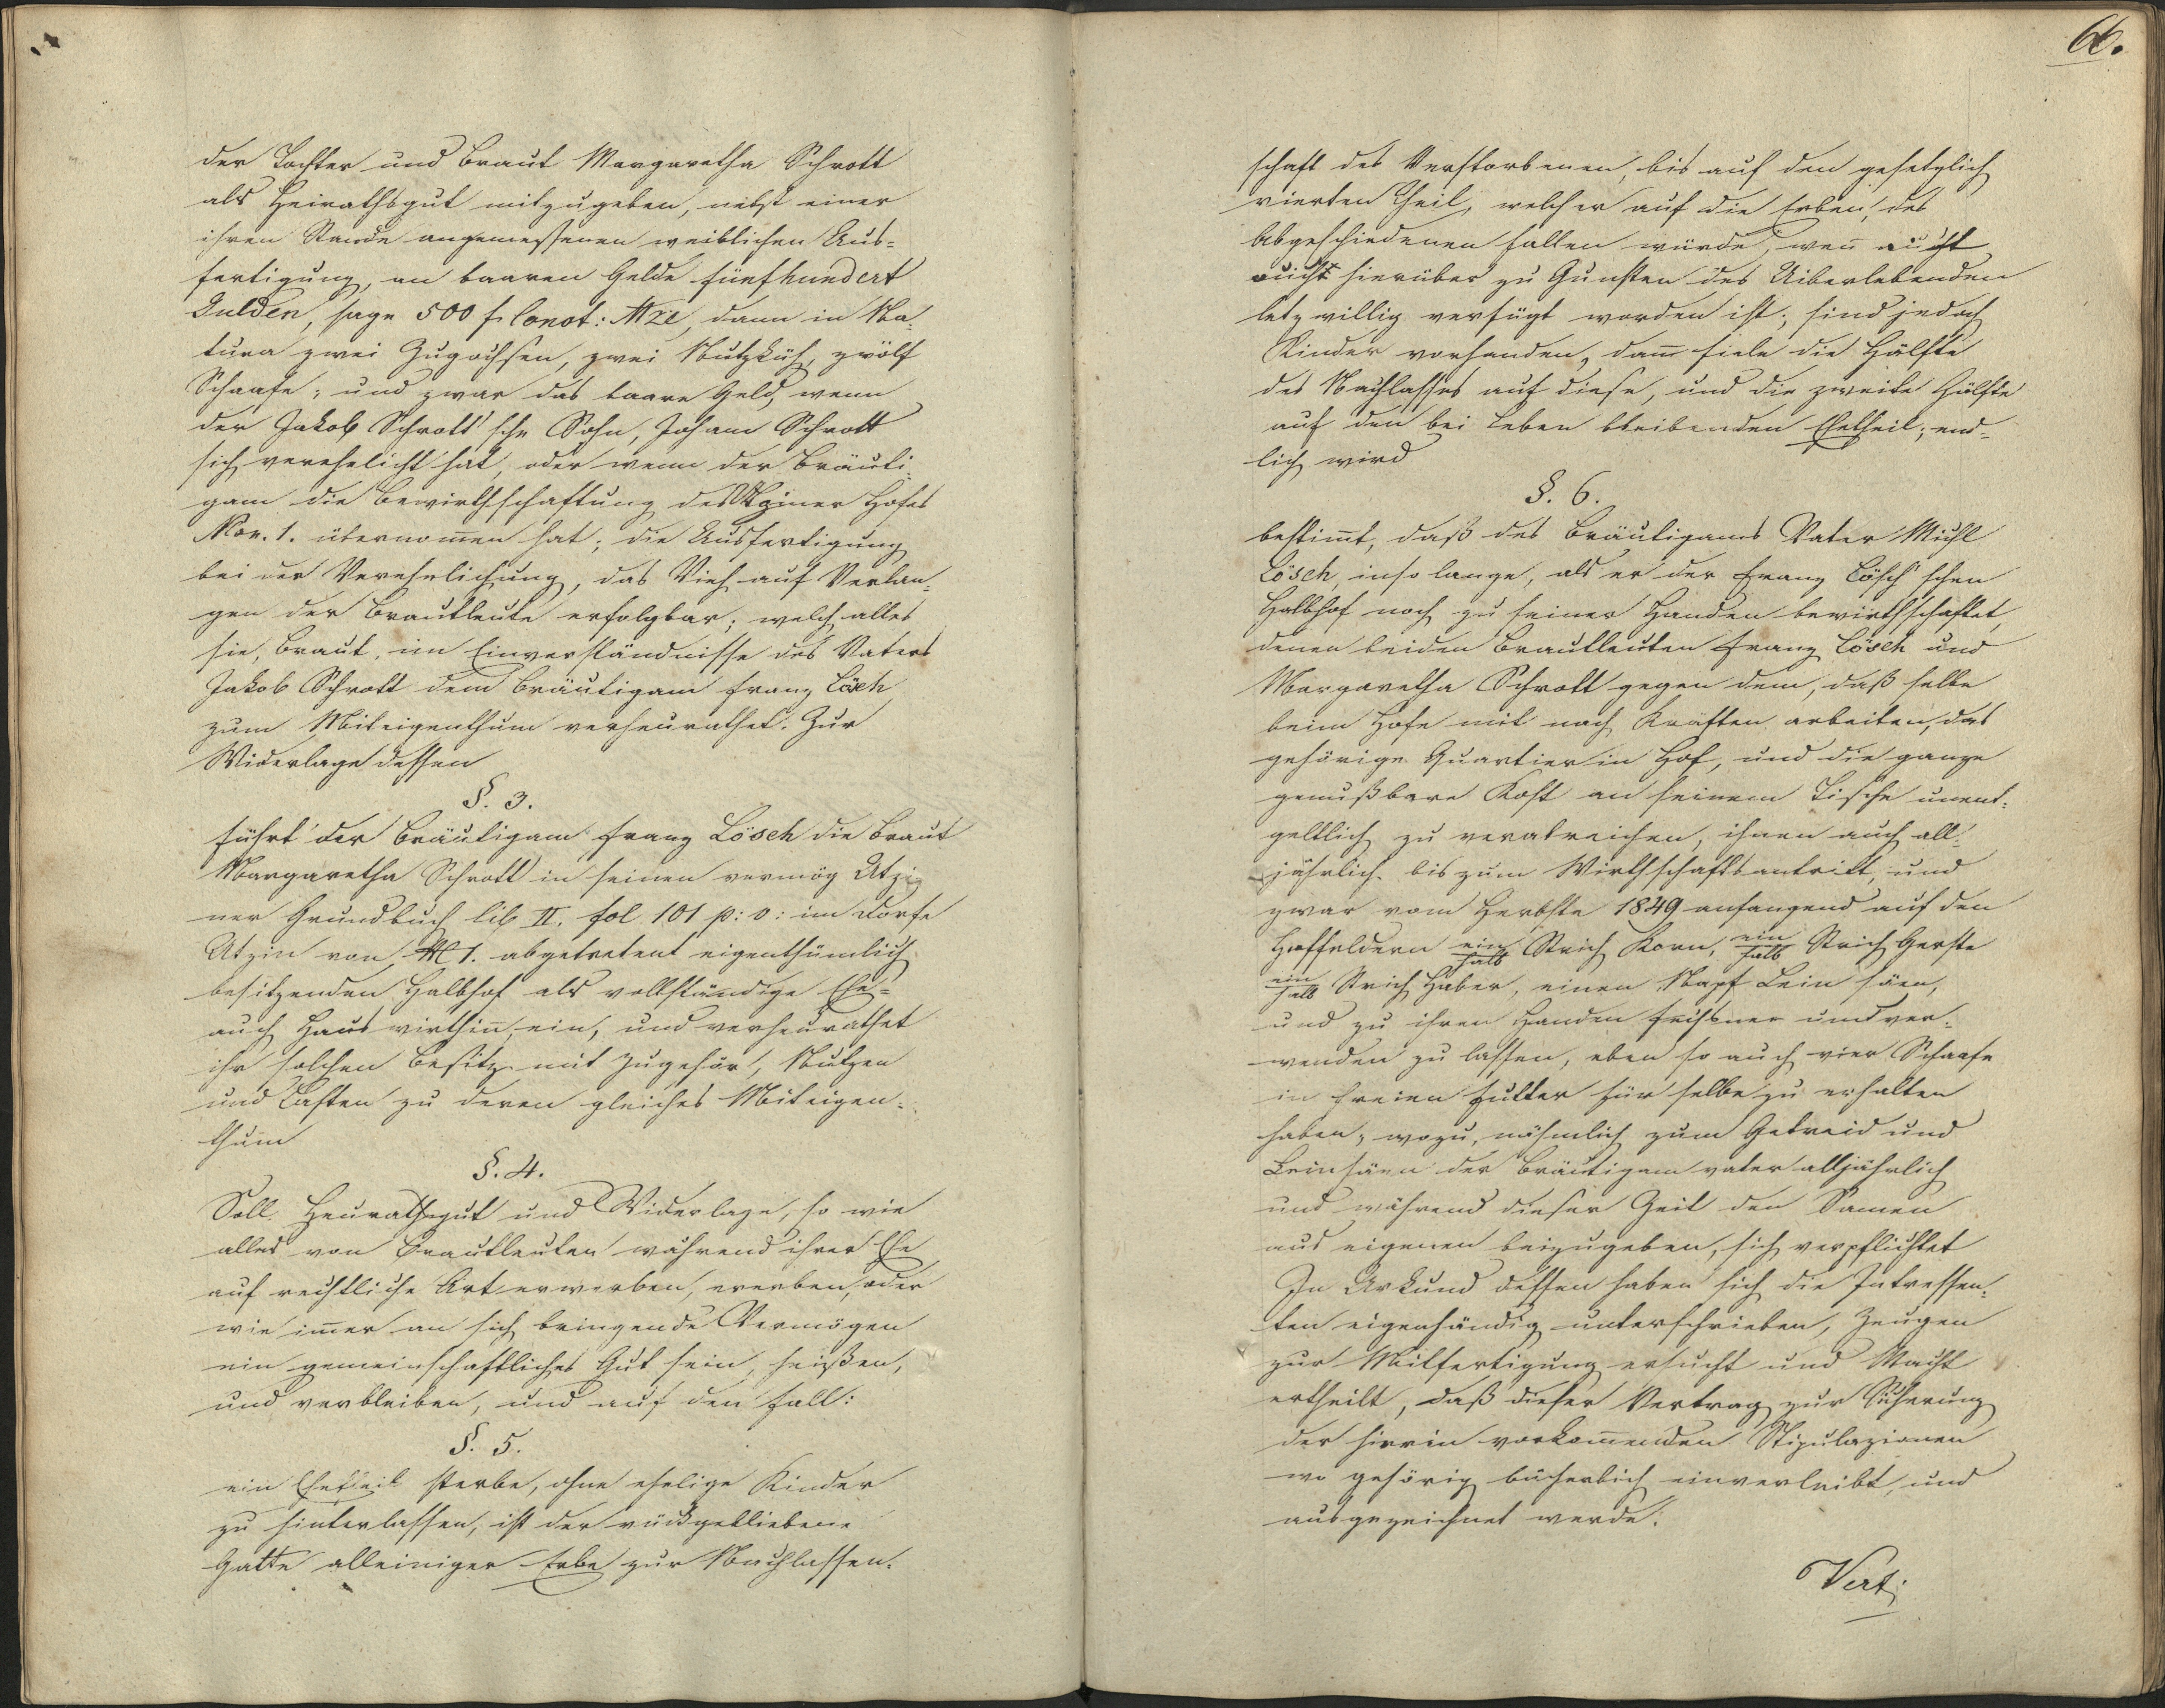 der Tochter und Braut Margaretha Schrott
als Heirathsgut mitzugeben, nebst einer
ihren Stande angemessenen weiblichen Aus-
fertigung, an baaren Gelde fünfhundert
Gulden, sage 500 f Convt: Mze, dann in Na-
tura zwei Zugochsen, zwei Nutzküh, zwölf
Schaafe; und zwar das baare Geld, wenn
der Jakob Schrott'sche Sohn, Johann Schrott
sich verehelicht hat, oder wenn der Bräuti-
gam die Bewirthschaftung des Atziner Hofes
Nro. 1. übernom̅en hat; die Ausfertigung
bei der Verehelichung, das Vieh auf Verlan-
gen der Brautleute erfolgbar; welch alles
sie, Braut, im Einverständnisse des Vaters
Jakob Schrott dem Bräutigam Franz Lösch
zum Miteigenthum verheurathet. Zur
Widerlage dessen
§. 3.
führt der Bräutigam Franz Lösch die Braut
Margaretha Schrott in seinen vermög Atzi-
ner Grundbuch lib II. fol 101 p: v: im Dorfe
Atzin von N 1. abgetretent eigenthümlich
besitzenden Halbhof als vollständige Ehe-
auch Hauswirthin̅ ein, und verheurathet
ihr solchen Besitz mit Zugehör, Nutzen
und Lasten zu deren gleiches Miteigen-
thum
§. 4.
Soll Heurathsgut und Widerlage, so wie
alles von Brautleuten während ihrer Ehe
auf rechtliche Art erworben, ererben, oder
wie im̅er an sich bringende Vermögen
ein gemeinschaftliches Gut sein, heißen,
und verbleiben, und auf den Fall:
§. 5.
ein Ehetheil sterbe, ohne ehelige Kinder
zu hinterlassen, ist der rückgebliebene
Gatte alleiniger Erbe zur Nachlassen-
66.
schaft des Verstorbenen, bis auf den gesetzlich
vierten Theil, welcher auf die Erben, des
Abgeschiedenen fallen würde, wen̅ nicht
nicht hierüber zu Gunsten des Uiberlebenden
letzwillig verfügt worden ist; sind jedoch
Kinder vorhanden, dan̅ fiele die Hälfte
des Nachlasses auf diese, und die zweite Hälfte
auf den bei Leben bleibenden Ehetheil; end-
lich wird
§. 6.
bestim̅t, daß des Bräutigams Vater Michl
Lösch, inso lange, als er der Franz Lösch'schen
Halbhof noch zu seiner Handen bewirthschaftet,
denen beiden Brautleuten Franz Lösch und
Margaretha Schrott gegen dem, daß selbe
beim Hofe mit nach Kräften arbeiten, das
gehörige Quartier in Hof, und die ganze
genußbare Kost an seinem Tische unent-
geltlich zu verabreichen, ihnen auch all-
jährlich bis zum Wirthschaftsantritt, und
zwar vom Herbste 1849 anfangend auf den
Hoffeldern ein halb Strich Korn, ein halb Strich Gerste
ein halb Strich Haber, einen Napf Lein säen,
und zu ihren Handen fechsner und ver-
wenden zu lassen, eben so auch vier Schaafe
in freien Futter für selbe zu erhalten
haben, wozu, nähmlich zum Getreid und
Leinsäen der Bräutigamvater alljährlich
und während dieser Zeit den Samen
aus eigenen beizugeben, sich verpflichtet
In Urkund dessen haben sich die Intressen-
ten eigenhändig unterschrieben, Zeugen
zur Mitfertigung ersucht und Macht
ertheilt, daß dieser Vertrag zur Sicherung
der hierin vorkom̅enden Stipulazionen
wo gehörig bücherlich einverleibt, und
ausgezeichnet werde.
Vert: